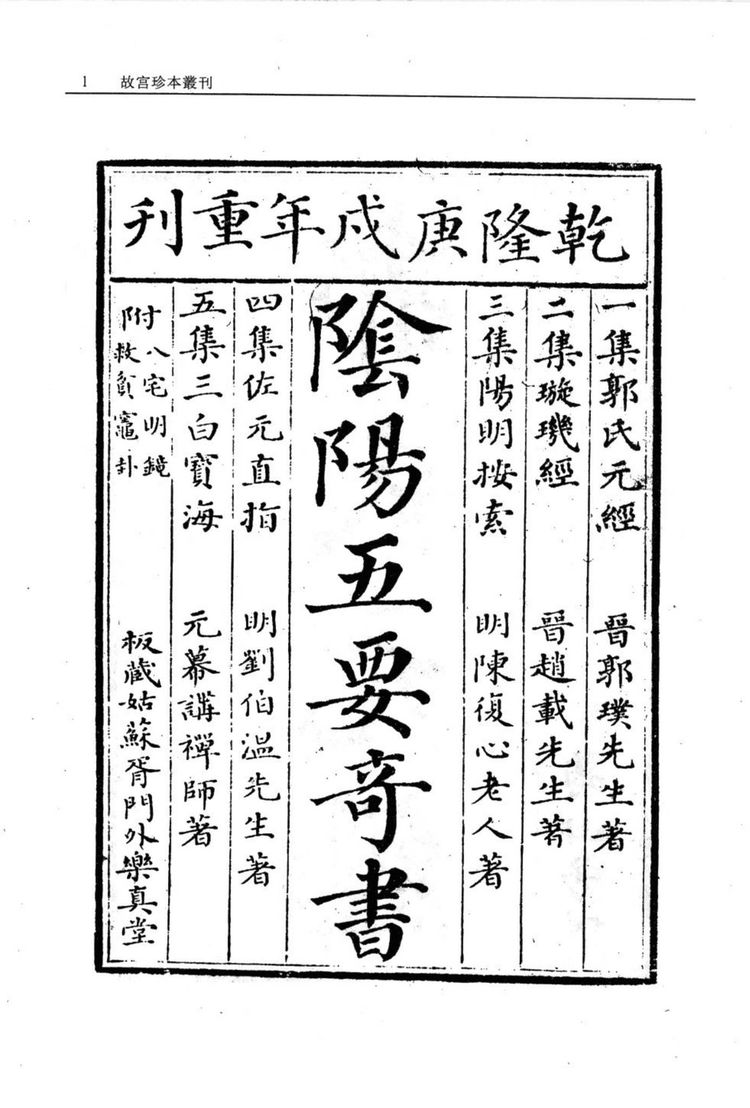 1 故宫珍本叢刊
乾隆庚戍年重刊
一集郭氏元經 晉郭璞先生著
二集璇璣經 晉趙載先生著
三集陽明按索 明陳復心老人著
陰陽五要奇書
四集佐元直指 明劉伯溫先生著
五集三白寶海 元幕講禪師著
附八宅明鏡
附救貧竈卦
板藏姑蘇胥門外樂真堂